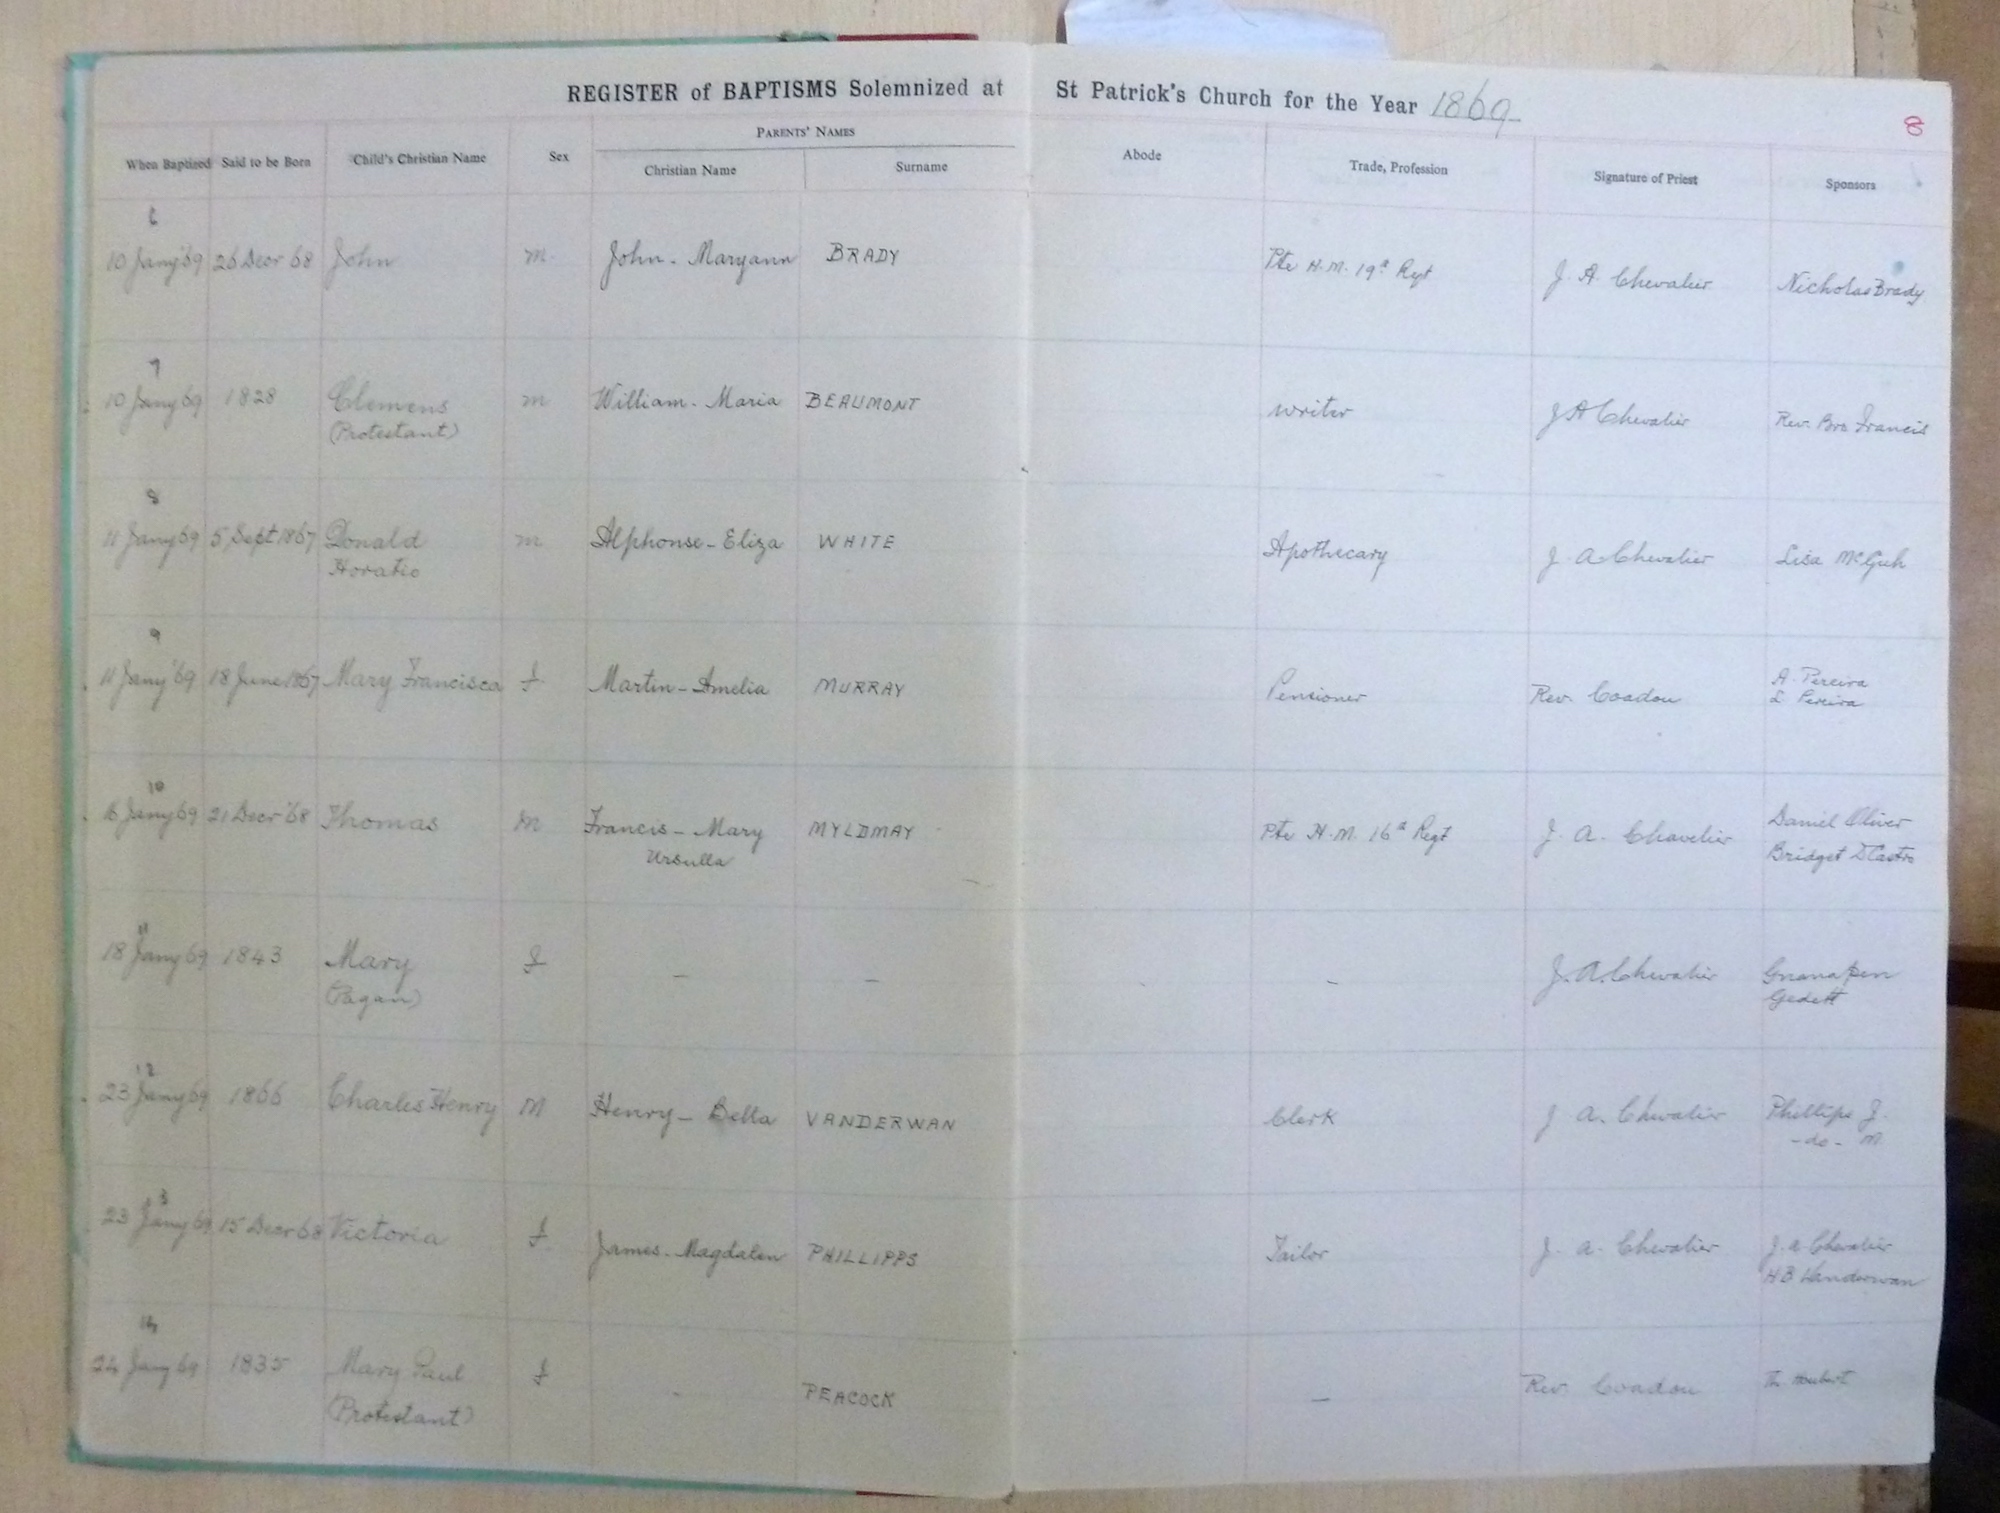 REGISTER of BAPTISMS Solemnized at St Patrick's Church for the Year 1869
8
PARENTS' NAMES
When Baptized Said to be Born Child's Christian Name Sex Christian Name Surname Abode Trade, Profession Signature of Priest Sponsors
6
10 Jany '69 26 Decr 68 John m. John - Maryann BRADY Pte H.M. 19th Regt J. A. Chevalier Nicholas Brady
7
10 Jany 69 1828 Clemens m William - Maria BEAUMONT writer J A Chevalier Rev. Bro Francis
(Protestant)
8
11 Jany 69 5 Sept 1867 Donald m Alphonse - Eliza WHITE Apothecary J. A Chevalier Lisa
Horatio
9
11 Jany '69 18 June 1867 Mary Francisca f. Martin - Amelia MURRAY Pensioner Rev. Coadou A. Pereira
L. Pereira
10
16 Jany 69 21 Decr '68 Thomas M Francis - Mary MYLDMAY Pte H.M. 16th Regt J. A. Chavelier Daniel Oliver
Ursulla Bridget D'Castro
11
18 Jany 69 1843 Mary f - - - J. A. Chevalier
(Pagan)
12
23 Jany 69 1866 Charles Henry M Henry - Bella VANDERWAN Clerk J A. Chevalier Phillips J.
- do - M
3
23 Jany 69 15 Decr 68 Victoria f. James - Magdalen PHILLIPPS Tailor J. A. Chevalier J. A Chevalier
H B Vanderwan
14
24 Jany 69 1835 Mary Paul f - PEACOCK - Rev. Coadou
(Protestant)